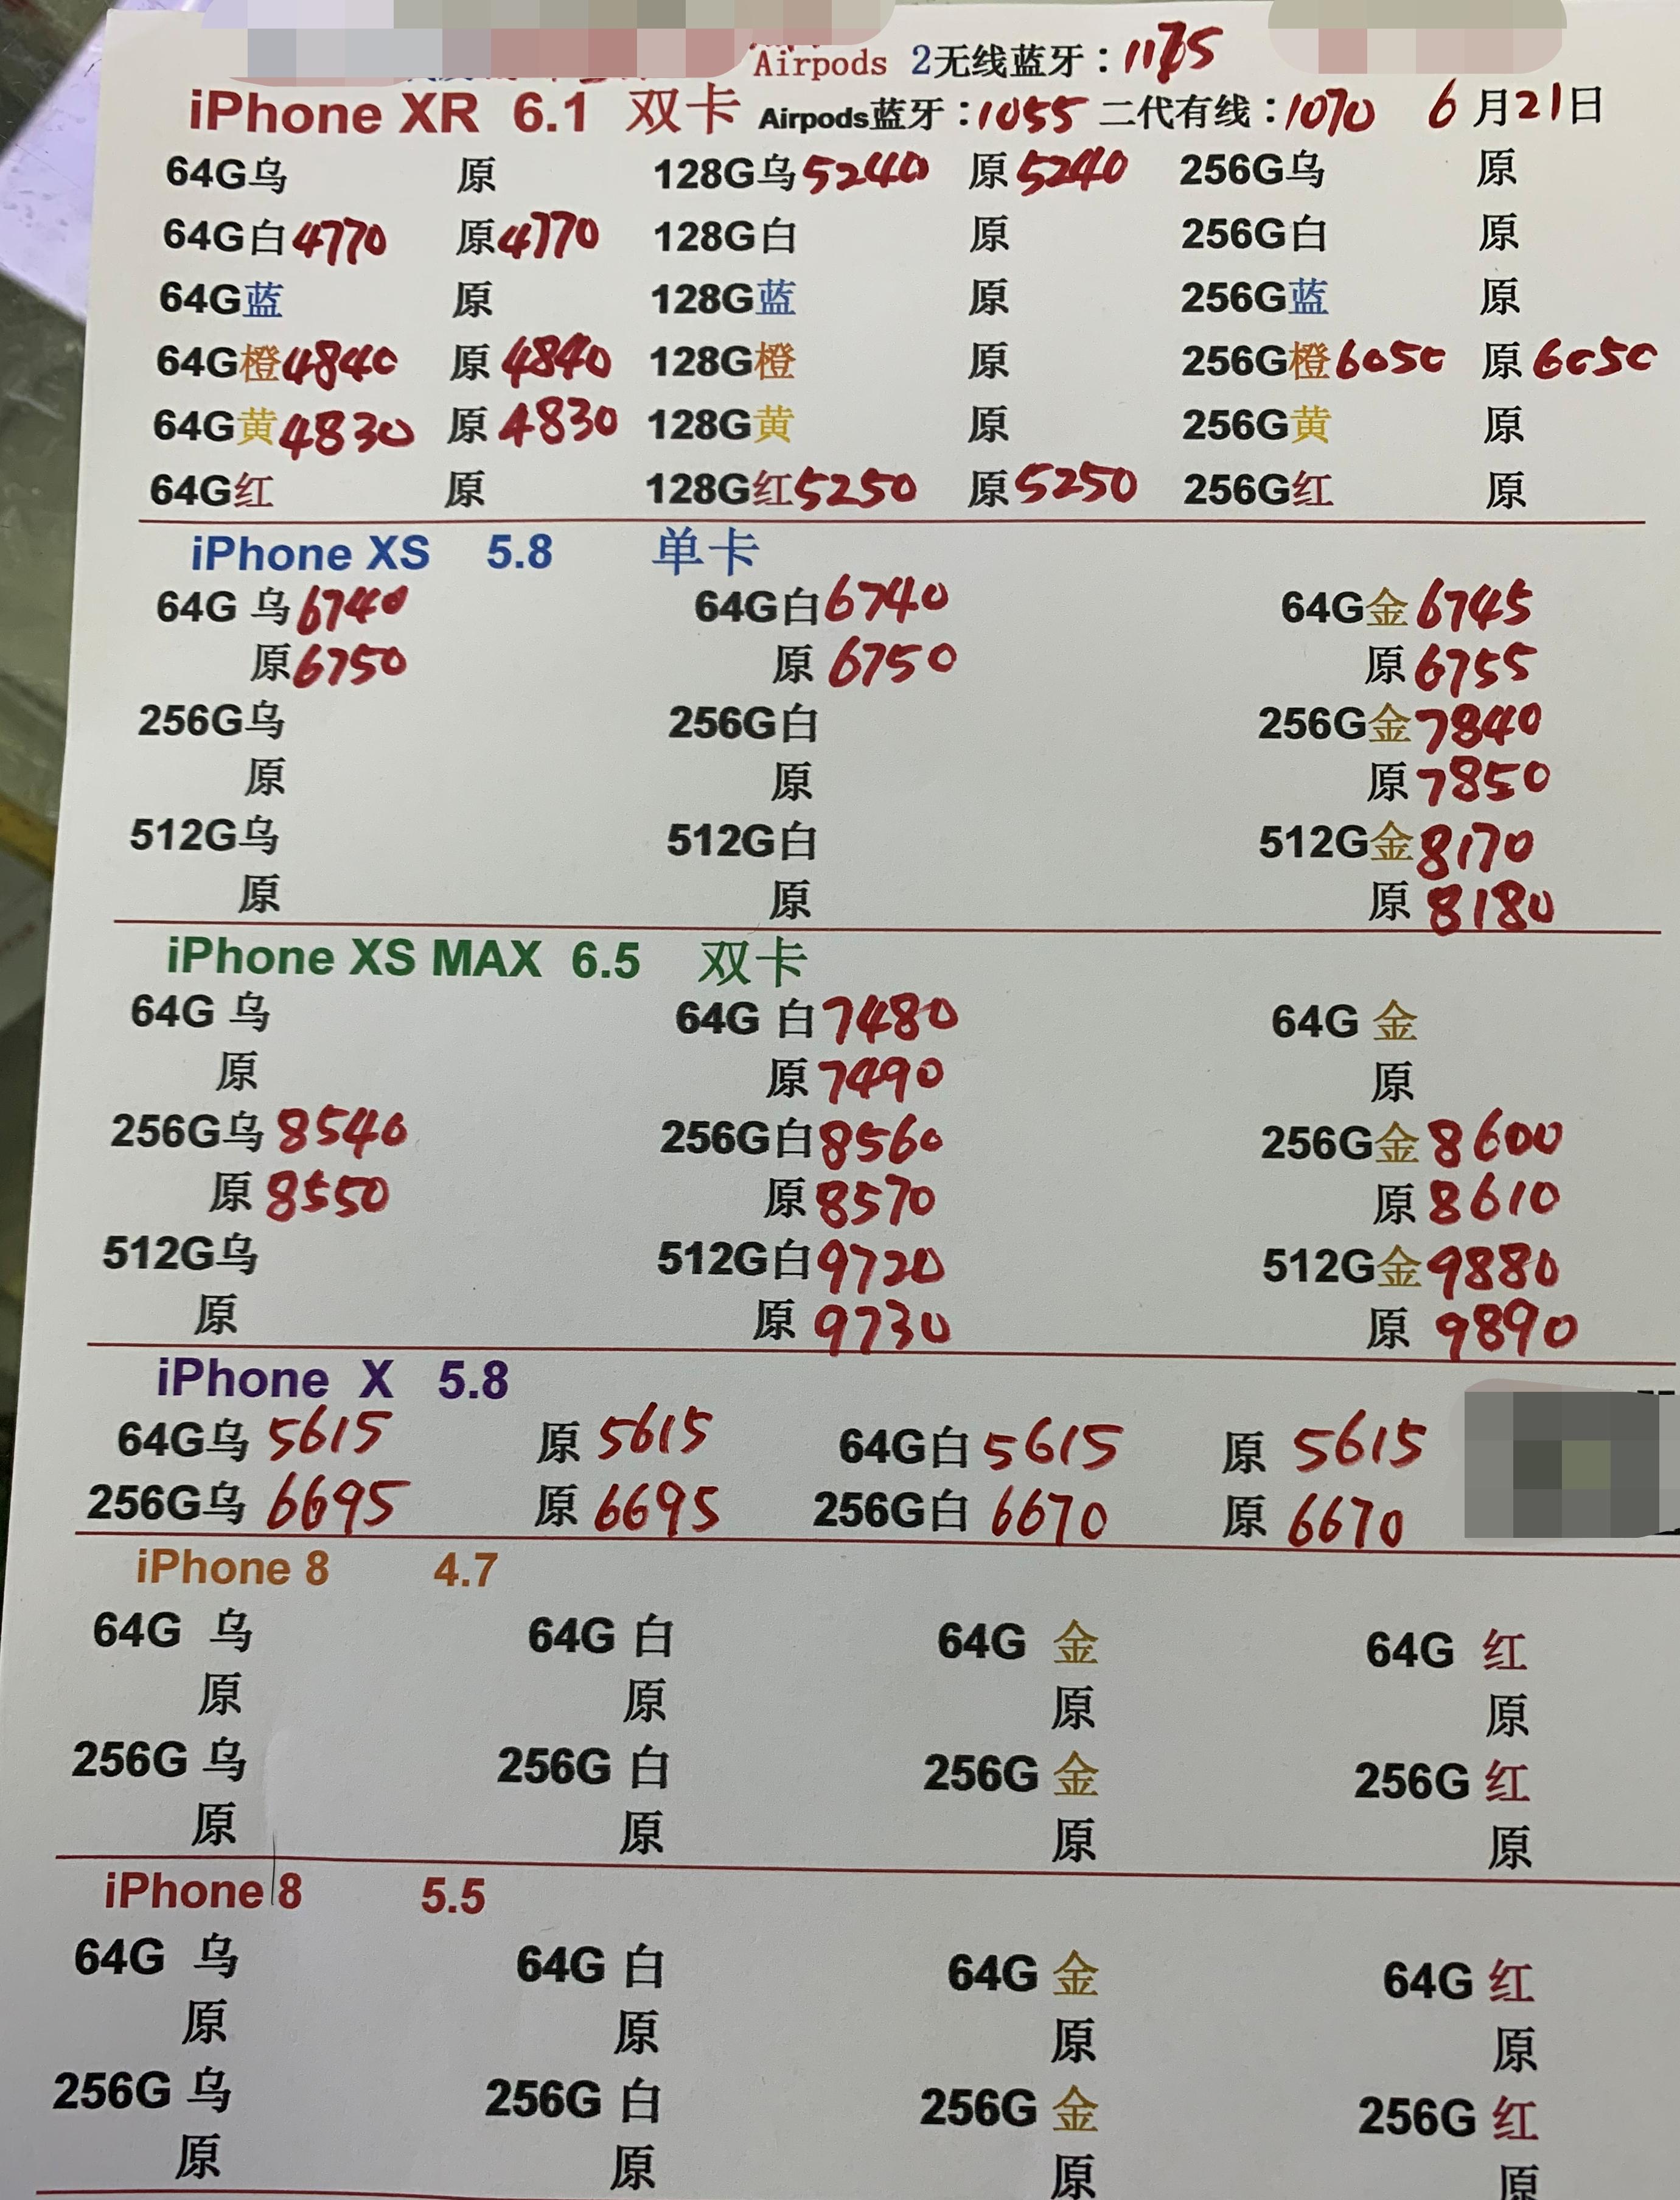 Airpods 2无线蓝牙：1175
iPhone XR 6.1 双卡 Airpods蓝牙：1055 二代有线：1070 6月21日
64G乌 原 128G乌5240 原5240 256G乌 原
64G白4770 原4770 128G白 原 256G白 原
64G蓝 原 128G蓝 原 256G蓝 原
64G橙4840 原4840 128G橙 原 256G橙6050 原6050
64G黄4830 原4830 128G黄 原 256G黄 原
64G红 原 128G红5250 原5250 256G红 原
iPhone XS 5.8 单卡
64G 乌6740 64G白6740 64G金6745
原6750 原6750 原6755
256G乌 256G白 256G金7840
原 原 原7850
512G乌 512G白 512G金8170
原 原 原8180
iPhone XS MAX 6.5 双卡
64G 乌 64G 白7480 64G 金
原 原7490 原
256G乌8540 256G白8560 256G金8600
原8550 原8570 原8610
512G乌 512G白9720 512G金9880
原 原9730 原9890
iPhone X 5.8
64G乌5615 原5615 64G白5615 原5615
256G乌6695 原6695 256G白6670 原6670
iPhone 8 4.7
64G 乌 64G 白 64G 金 64G 红
原 原 原 原
256G 乌 256G 白 256G 金 256G 红
原 原 原 原
iPhone 8 5.5
64G 乌 64G 白 64G 金 64G 红
原 原 原 原
256G 乌 256G 白 256G 金 256G 红
原 原 原 原